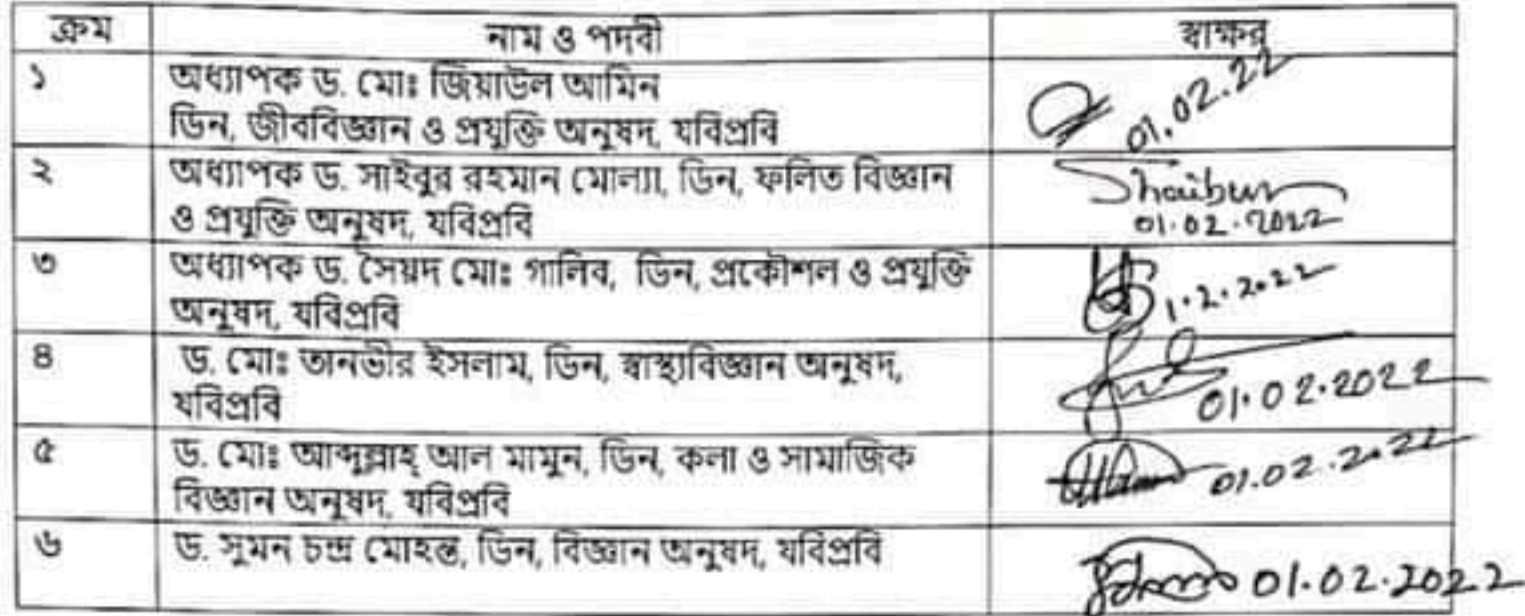 ক্রম নাম ও পদবী স্বাক্ষর
১ অধ্যাপক ড. মোঃ জিয়াউল আমিন
ডিন, জীববিজ্ঞান ও প্রযুক্তি অনুষদ, যবিপ্রবি
01.02.22
২ অধ্যাপক ড. সাইবুর রহমান মোল্যা, ডিন, ফলিত বিজ্ঞান
ও প্রযুক্তি অনুষদ, যবিপ্রবি
Shaibur
01.02.2022
৩ অধ্যাপক ড. সৈয়দ মোঃ গালিব, ডিন, প্রকৌশল ও প্রযুক্তি
অনুষদ, যবিপ্রবি
1.2.2022
৪ ড. মোঃ তানভীর ইসলাম, ডিন, স্বাস্থ্যবিজ্ঞান অনুষদ,
যবিপ্রবি
01.02.2022
৫ ড. মোঃ আব্দুল্লাহ্ আল মামুন, ডিন, কলা ও সামাজিক
বিজ্ঞান অনুষদ, যবিপ্রবি
01.02.2022
৬ ড. সুমন চন্দ্র মোহন্ত, ডিন, বিজ্ঞান অনুষদ, যবিপ্রবি
01.02.2022